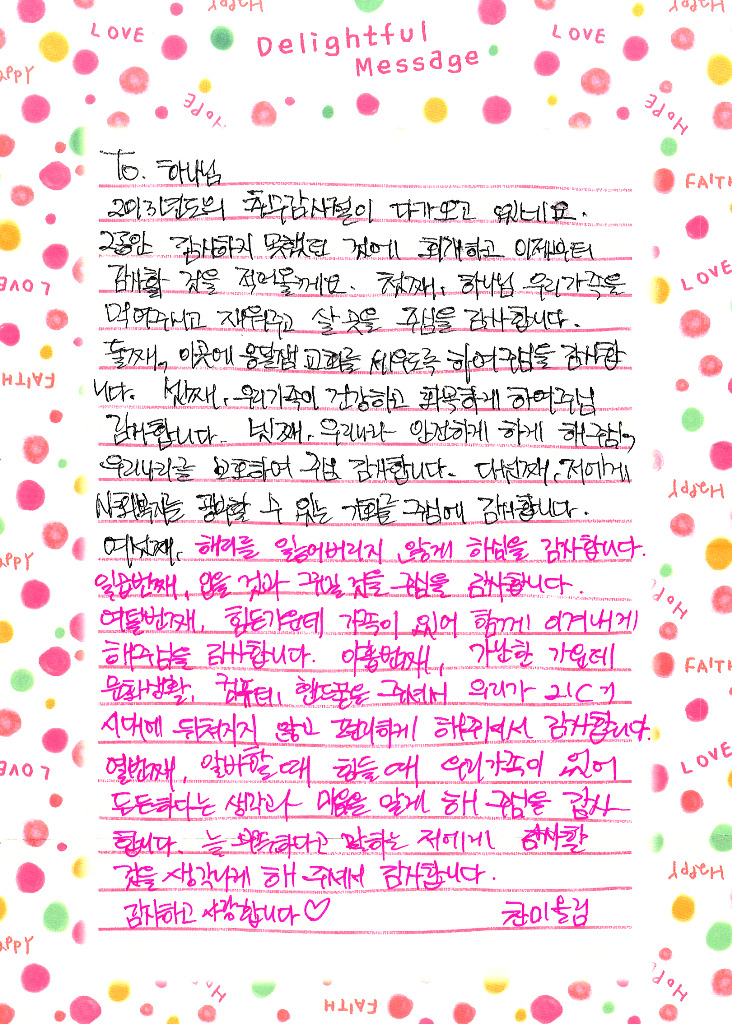 Delightful
Message
To. 하나님
2013년도의 추수감사절이 다가오고 있네요.
감사하지 못했던 것에 회개하고 이제부터
감사할 것을 적어올께요. 첫째, 하나님 우리가족을
먹여주시고 재워주고 살 곳을 주심을 감사합니다.
둘째, 이곳에 옹달샘 교회를 세우도록 하여주심을 감사합
니다. 셋째, 우리가족이 건강하고 화목하게 하여주심
감사합니다. 넷째, 우리나라 안전하게 하게 해주심,
우리나라를 보호하여 주심 감사합니다. 다섯째, 저에게
수 있는 기회를 주심에 감사합니다.
여섯째, 해리를 잃어버리지 않게 하심을 감사합니다.
일곱번째, 입을 것과 주심을 감사합니다.
여덟번째, 힘든가운데 가족이 있어 함께 이겨내게
해주심을 감사합니다. 아홉번째, 가난한 가운데
문화생활, 컴퓨터, 핸드폰을 주셔서 우리가 21C
시대에 뒤쳐지지 않고 편리하게 해주셔서 감사합니다.
열번째, 알바할때 힘들때 우리가족이 있어
든든하다는 생각과 마음을 알게 해 주심을 감사
합니다. 늘 말하는 저에게 감사할
것을 생각나게 해 주셔서 감사합니다.
감사하고 사랑합니다♡
LOVE
LOVE
HAPPY
HOPE
FAITH